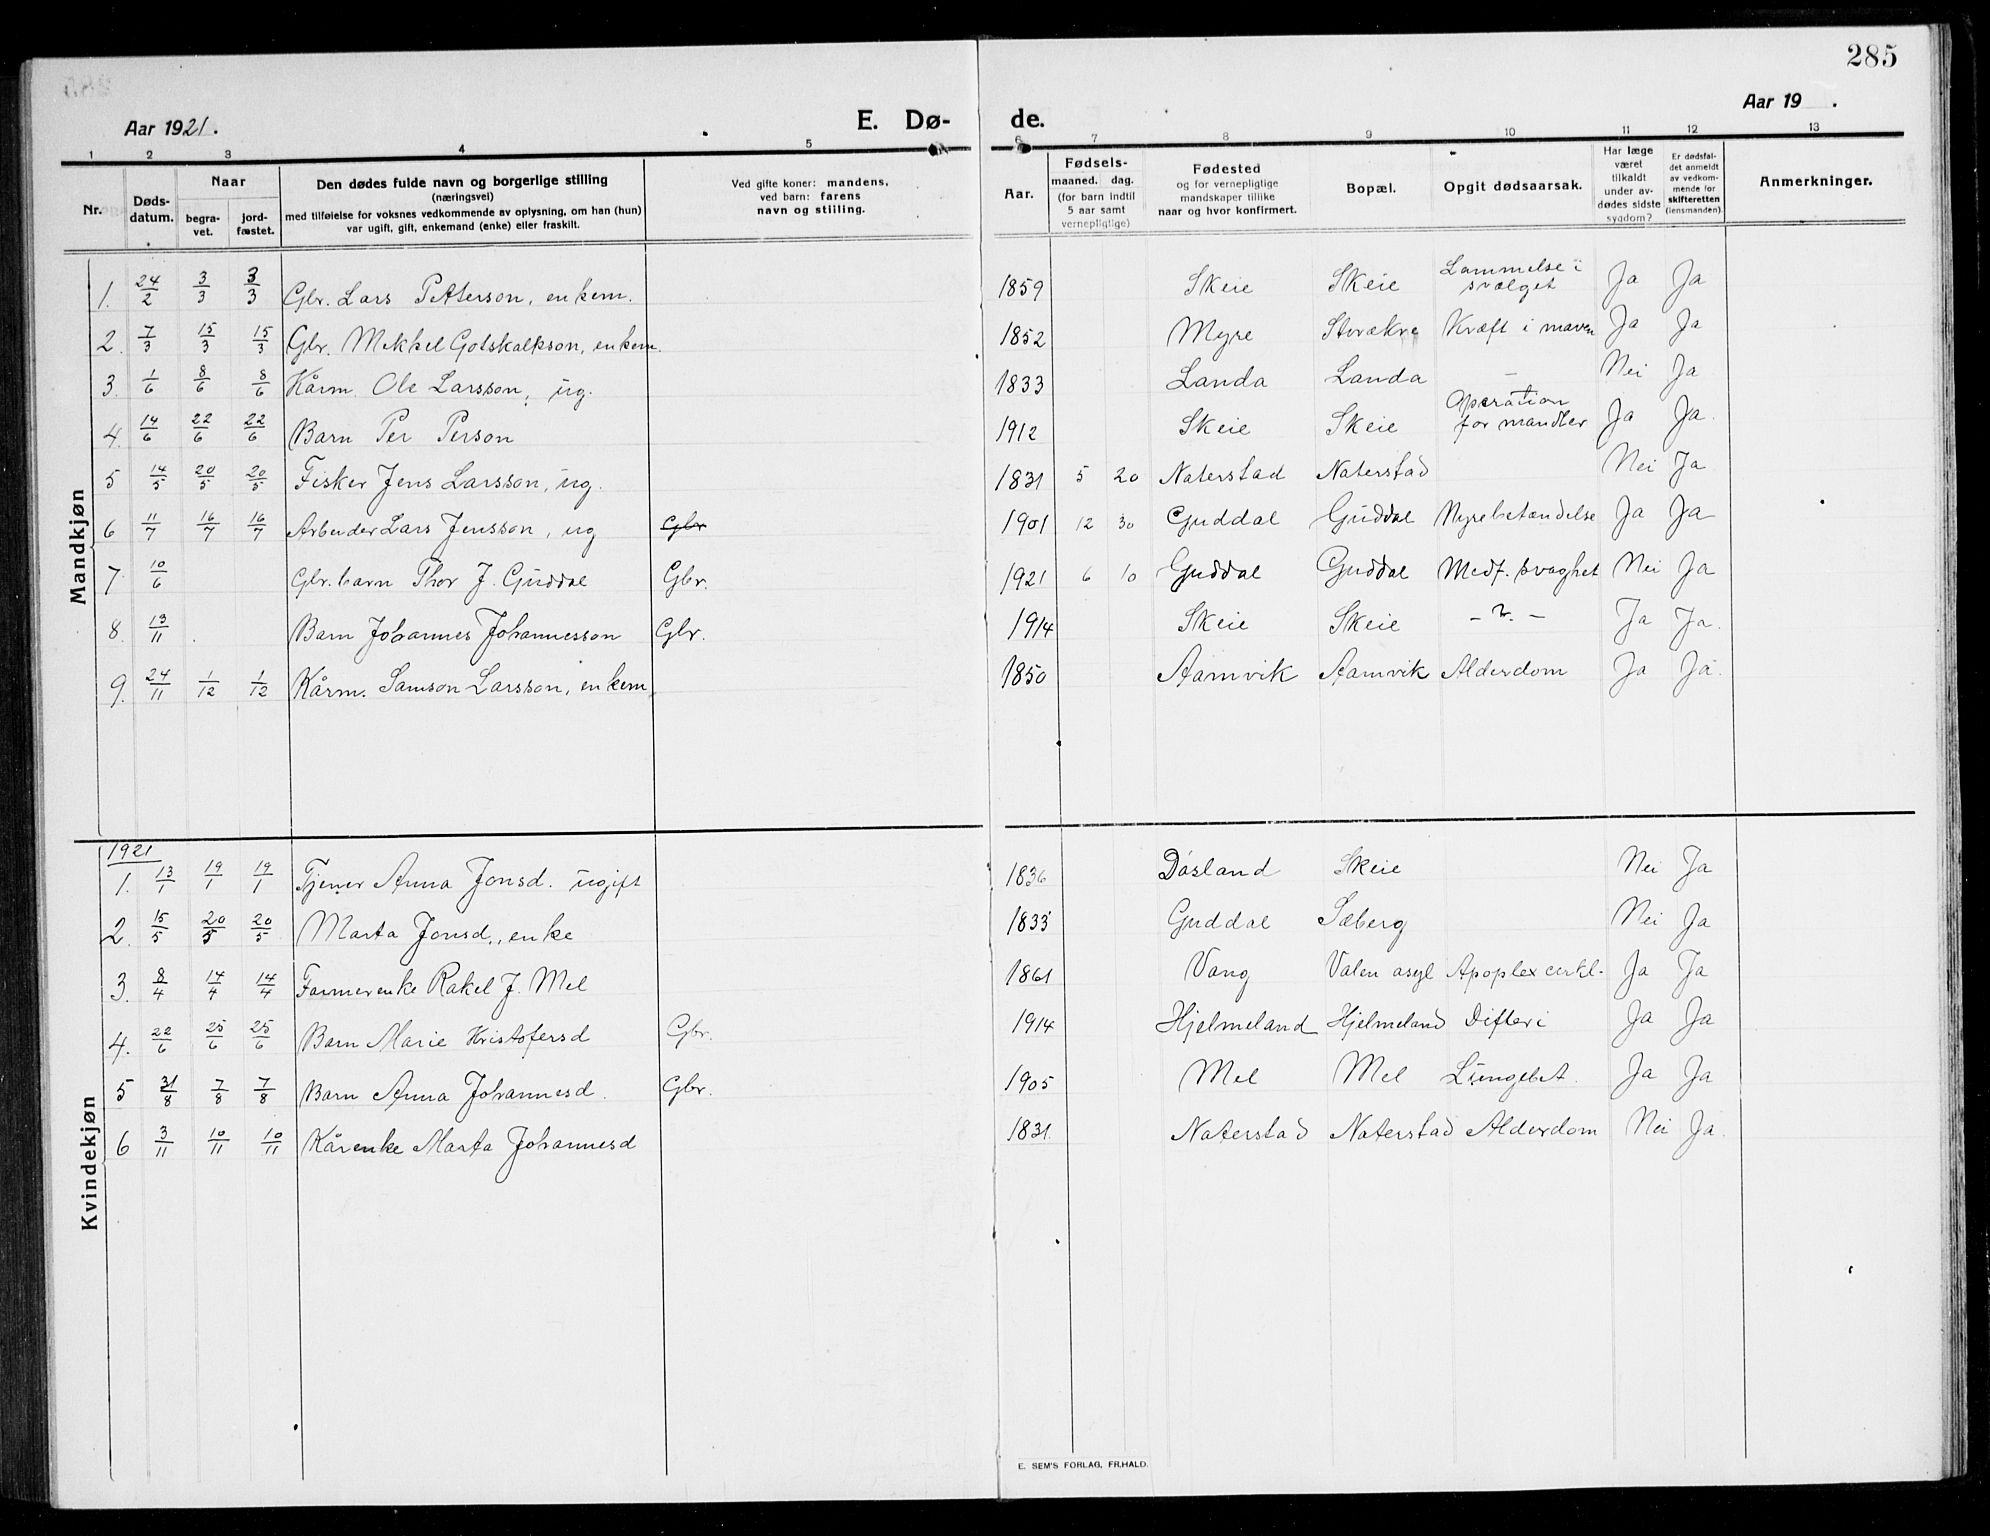 285
Aar 1921.
E. Dø- de.
Aar 19 .
1 2 3 4 5 6 7 8 9 10 11 12 13
Nr.
Døds-datum.
Naar
begra-vet.
jord-fæstet.
Den dødes fulde navn og borgerlige stilling
(næringsvei)
med tilføielse for voksnes vedkommende av oplysning, om han (hun)
var ugift, gift, enkemand (enke) eller fraskilt.
Ved gifte koner: mandens,
ved barn: farens
navn og stilling.
Aar.
Fødsels-
maaned. dag.
(for barn indtil
5 aar samt
vernepligtige)
Fødested
og for vernepligtige
mandskaper tillike
naar og hvor konfirmert.
Bopæl.
Opgit dødsaarsak.
Har læge
været
tilkaldt
under av-
dødes sidste
sygdom?
Er dødsfal-
det anmeldt
av vedkom-
mende for
skifteretten
(lensmanden).
Anmerkninger.
Mandkjøn
1. 24/2 3/3 3/3 Gbr. Lars Petterson, enkem. 1859 Skeie Skeie Lammelse i svælget Ja Ja
2. 7/3 15/3 15/3 Gbr. Mikkel Gotskalkson, enkem. 1852 Myre Storækre Kræft i maven Ja Ja
3. 1/6 8/6 8/6 Kårm. Ole Larsson, ug. 1833 Landa Landa – Nei Ja
4. 14/6 22/6 22/6 Barn Per Person 1912 Skeie Skeie Operation for mandler Ja Ja.
5 14/5 20/5 20/5 Fisker Jens Larsson, ug. 1831 5 20 Naterstad Naterstad Nei Ja
6 11/7 16/7 16/7 Arbeider Lars Jensson, ug Gbr 1901 12 30 Guddal Guddal Nyrebetændelse Ja Ja
7. 10/6 Gbr. barn Thor J. Guddal Gbr. 1921 6 10 Guddal Guddal Medf. svaghet Nei Ja
8. 13/11 Barn Johannes Johannesson Gbr. 1914 Skeie Skeie – ? – Ja Ja.
9. 24/11 1/12 1/12 Kårm. Samson Larsson, enkem 1850 Aamvik Aamvik Alderdom Ja Ja.
Kvindekjøn
1921
1. 13/1 19/1 19/1 Tjener Anna Jonsd. ugift 1836 Døsland Skeie Nei Ja
2. 15/5 20/5 20/5 Marta Jonsd., enke 1833 Guddal Sæberg Nei Ja
3. 8/4 14/4 14/4 Farmerenke Rakel J. Mel 1861 Vang Valen asyl Apoplex cerkl. Ja Ja
4. 22/6 25/6 25/6 Barn Marie Kristofersd Gbr. 1914 Hjelmeland Hjelmeland Difteri Ja Ja
5 31/8 7/8 7/8 Barn Anna Johannesd. Gbr. 1905 Mel Mel Lungebet. Ja Ja
6 3/11 10/11 10/11 Kårenke Marta Johannesd 1831. Naterstad Naterstad Alderdom Nei Ja.
E. SEM'S FORLAG, FR.HALD.